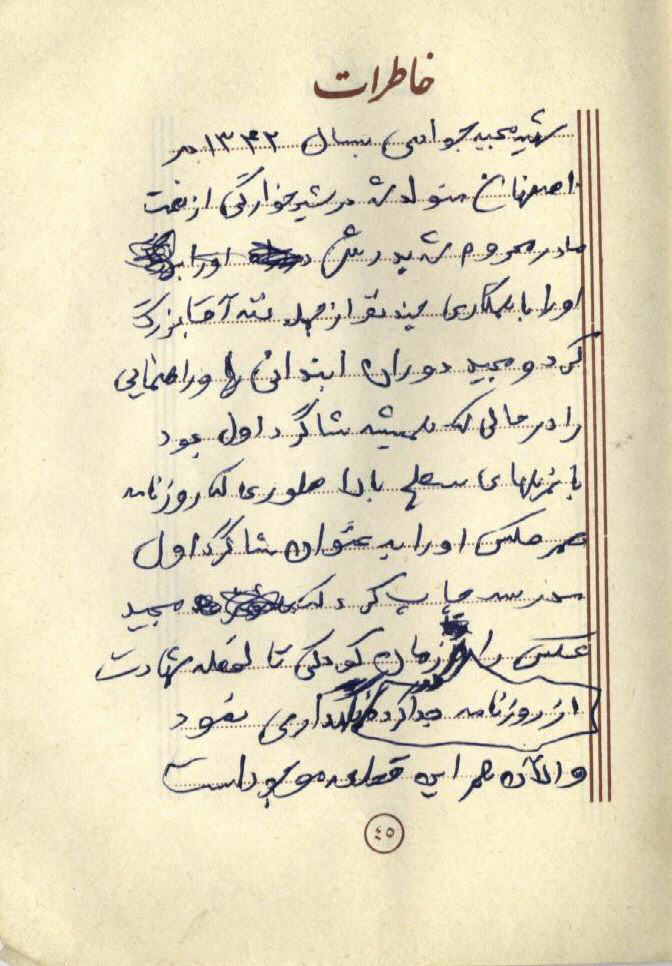 خاطرات
شهید مجید جوادی بسال ۱۳۴۲ در
اصفهان متولد شد در شیرخوارگی از نعمت
مادر محروم شد پدرش او را
او را با همکاری چند نفر از جمله ننه آقا بزرگ
کرد و مجید دوران ابتدائی و راهنمایی
را در حالی که همیشه شاگرد اول بود
با نمره‌های سطح بالا طوری که روزنامه
عکس او را به عنوان شاگرد اول
مدرسه چاپ کرد که مجید
عکس را از زمان کودکی تا لحظه شهادت
از روزنامه جدا کرده نگهداری نمود
و الآن هم این قطعه موجود است
٤٥